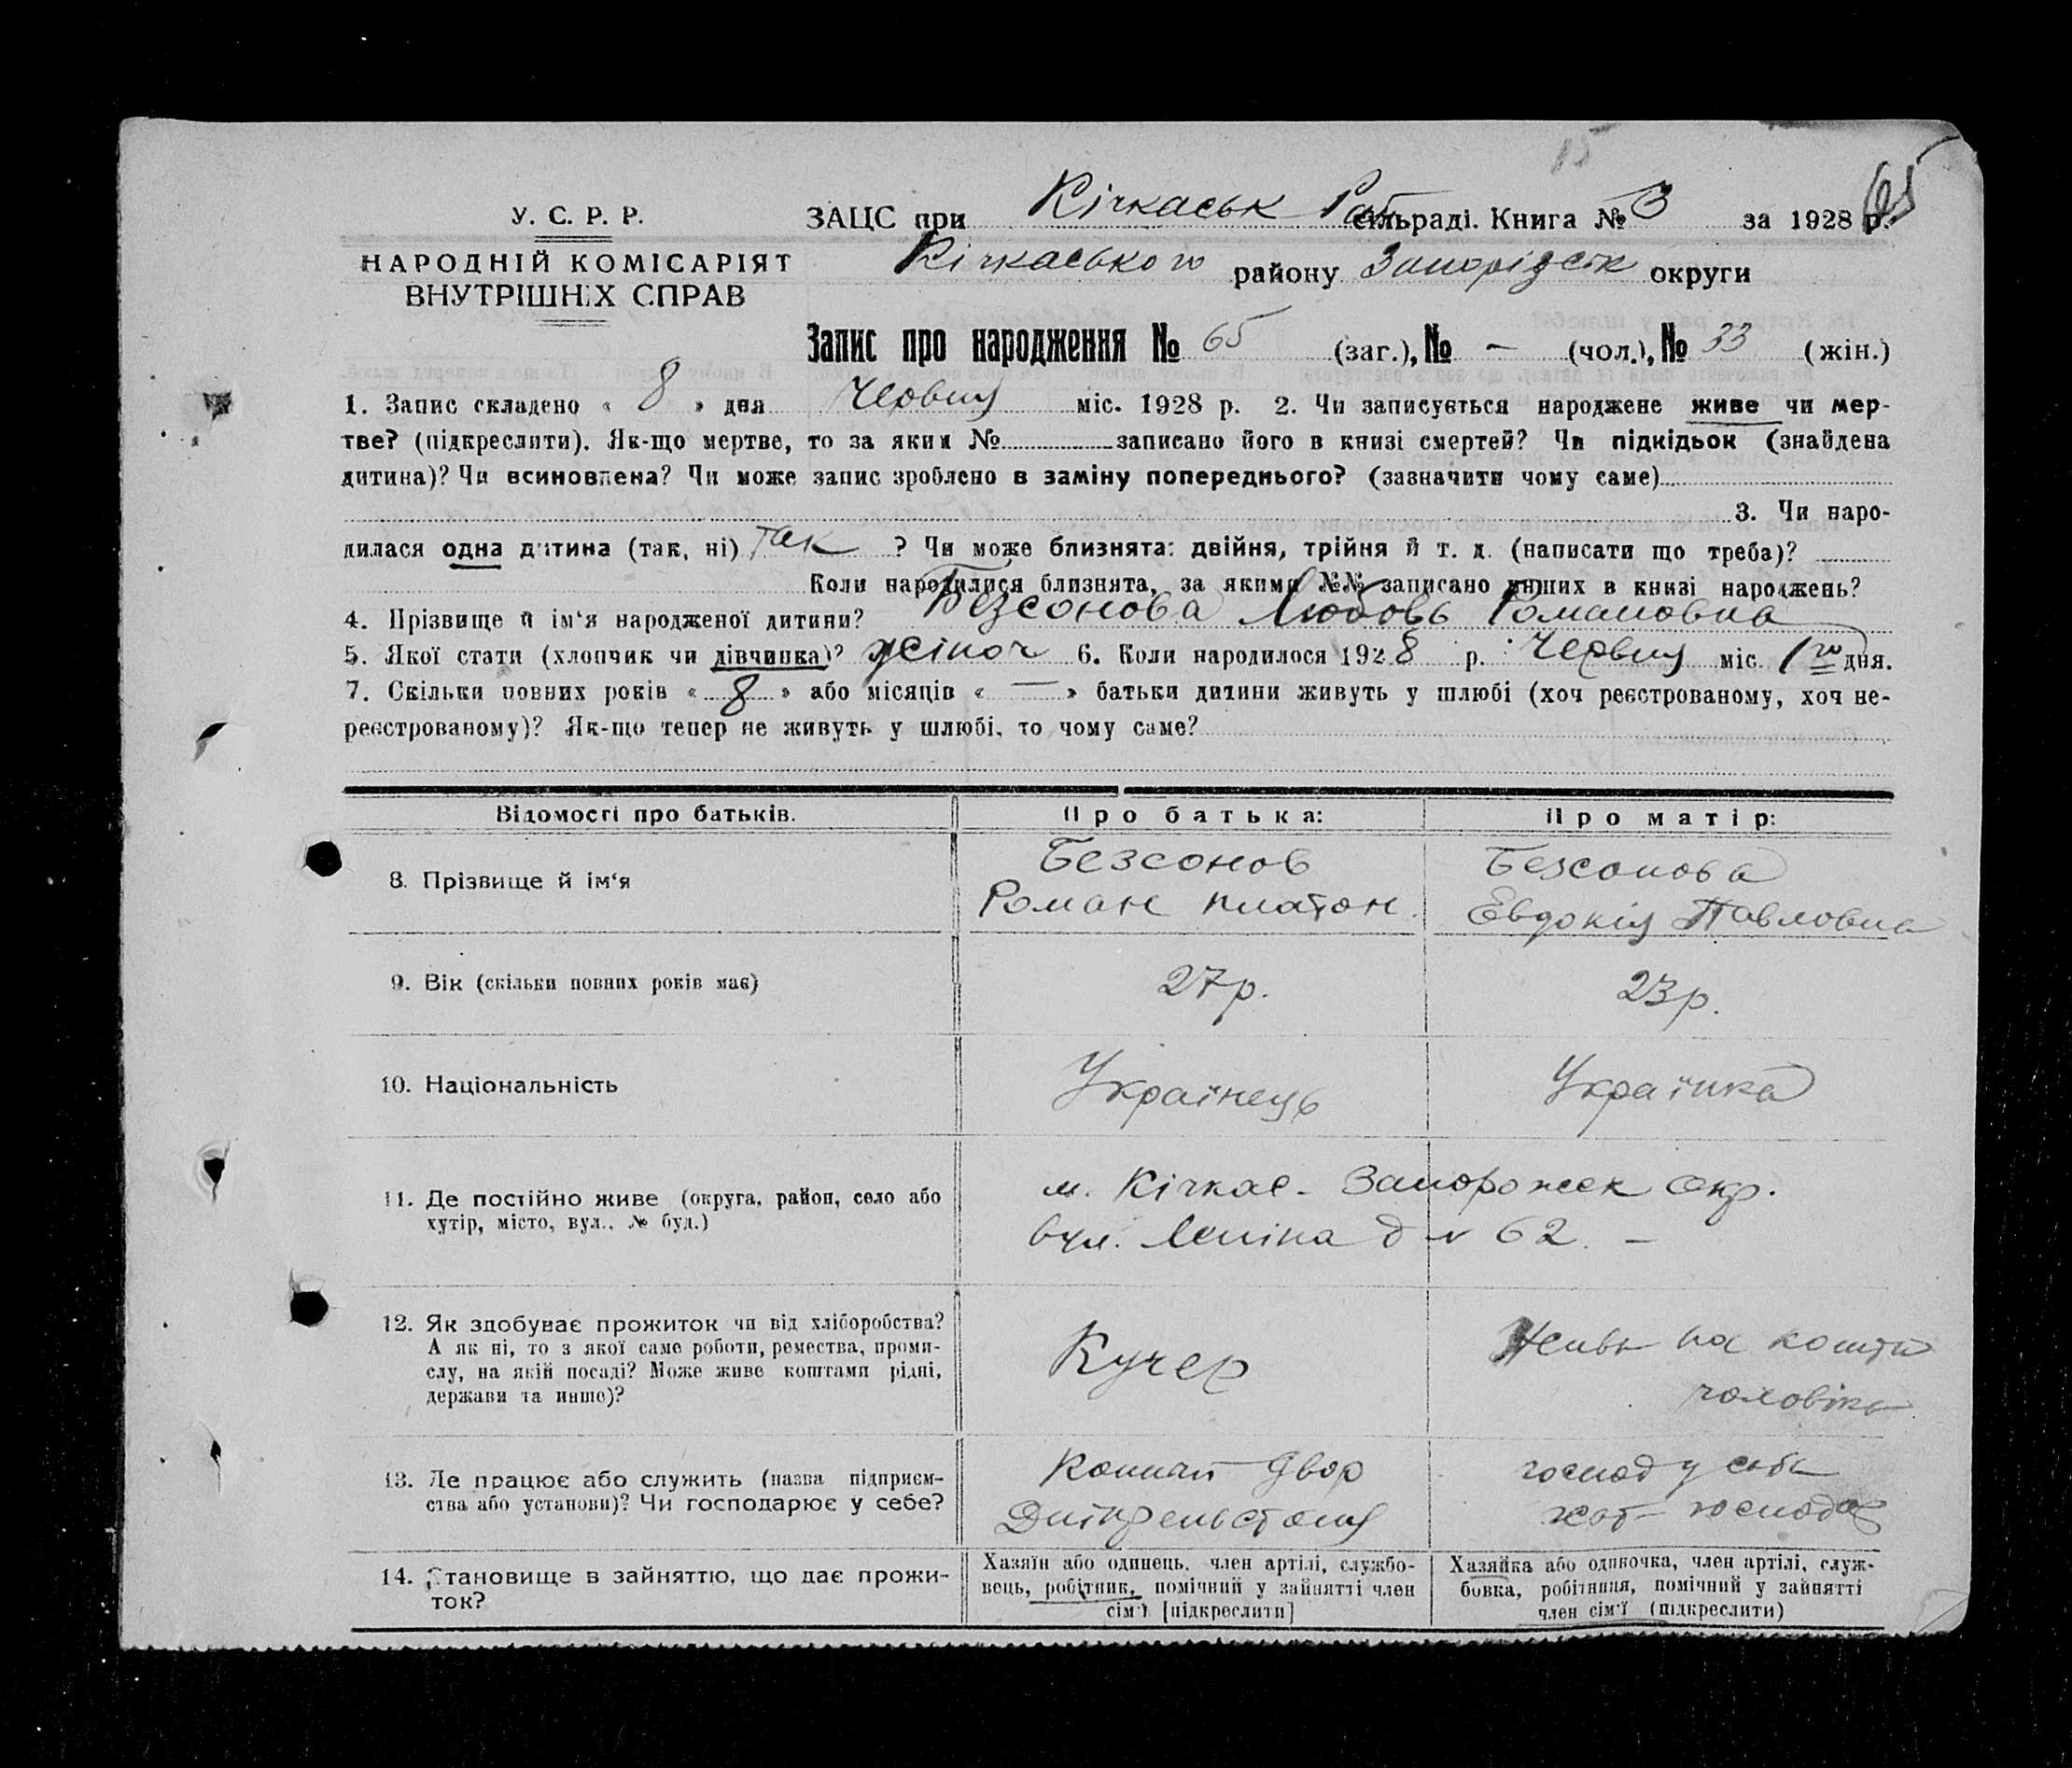 15
65
У. С. Р. Р.
НАРОДНІЙ КОМІСАРІЯТ
ВНУТРІШНІХ СПРАВ
ЗАЦС при Кічкаськ Рай сільраді. Книга № 3 за 1928 р.
Кічкаського району Запорізськ округи
Запис про народження № 65 (заг.), № — (чол.), № 33 (жін.)
1. Запис складено « 8 » дня Червця міс. 1928 р. 2. Чи записується народжене живе чи мер-
тве? (підкреслити). Як-що мертве, то за яким № записано його в книзі смертей? Чи підкідьок (знайдена
дитина)? Чи всиновлена? Чи може запис зроблено в заміну попереднього? (зазначити чому саме)
3. Чи наро-
дилася одна дитина (так, ні) так ? Чи може близнята: двійня, трійня й т. д. (написати що треба)?
Коли народилися близнята, за якими №№ записано инших в книзі народжень?
4. Прізвище й ім'я народженої дитини? Безсонова Любовь Романовна
5. Якої стати (хлопчик чи дівчинка)? жіноч 6. Коли народилося 1928 р. Червця міс. 1го дня.
7. Скільки повних років « 8 » або місяців « — » батьки дитини живуть у шлюбі (хоч реєстрованому, хоч не-
реєстрованому)? Як-що тепер не живуть у шлюбі, то чому саме?
Відомості про батьків. Про батька: Про матір:
8. Прізвище й ім'я
Безсонов
Роман платон.
Безсонова
Евдокія Павловна
9. Вік (скільки повних років має) 27р. 23р.
10. Національність Українець Українка
11. Де постійно живе (округа, район, село або
хутір, місто, вул., № буд.)
м. Кічкас - Запорожск Окр.
вул. Леніна д № 62. —
12. Як здобуває прожиток чи від хліборобства?
А як ні, то з якої саме роботи, ремества, проми-
слу, на якій посаді? Може живе коштами рідні,
держави та инше)?
Кучер
на кошти
чоловіка
13. Де працює або служить (назва підприєм-
ства або установи)? Чи господарює у себе?
Конний двор
Дніпрельстану
господ у себе
14. Становище в зайняттю, що дає прожи-
ток?
Хазяїн або одинець, член артілі, службо-
вець, робітник, помічний у зайнятті член
сім'ї [підкреслити]
Хазяйка або одиночка, член артілі, служ-
бовка, робітниця, помічний у зайнятті
член сім'ї (підкреслити)